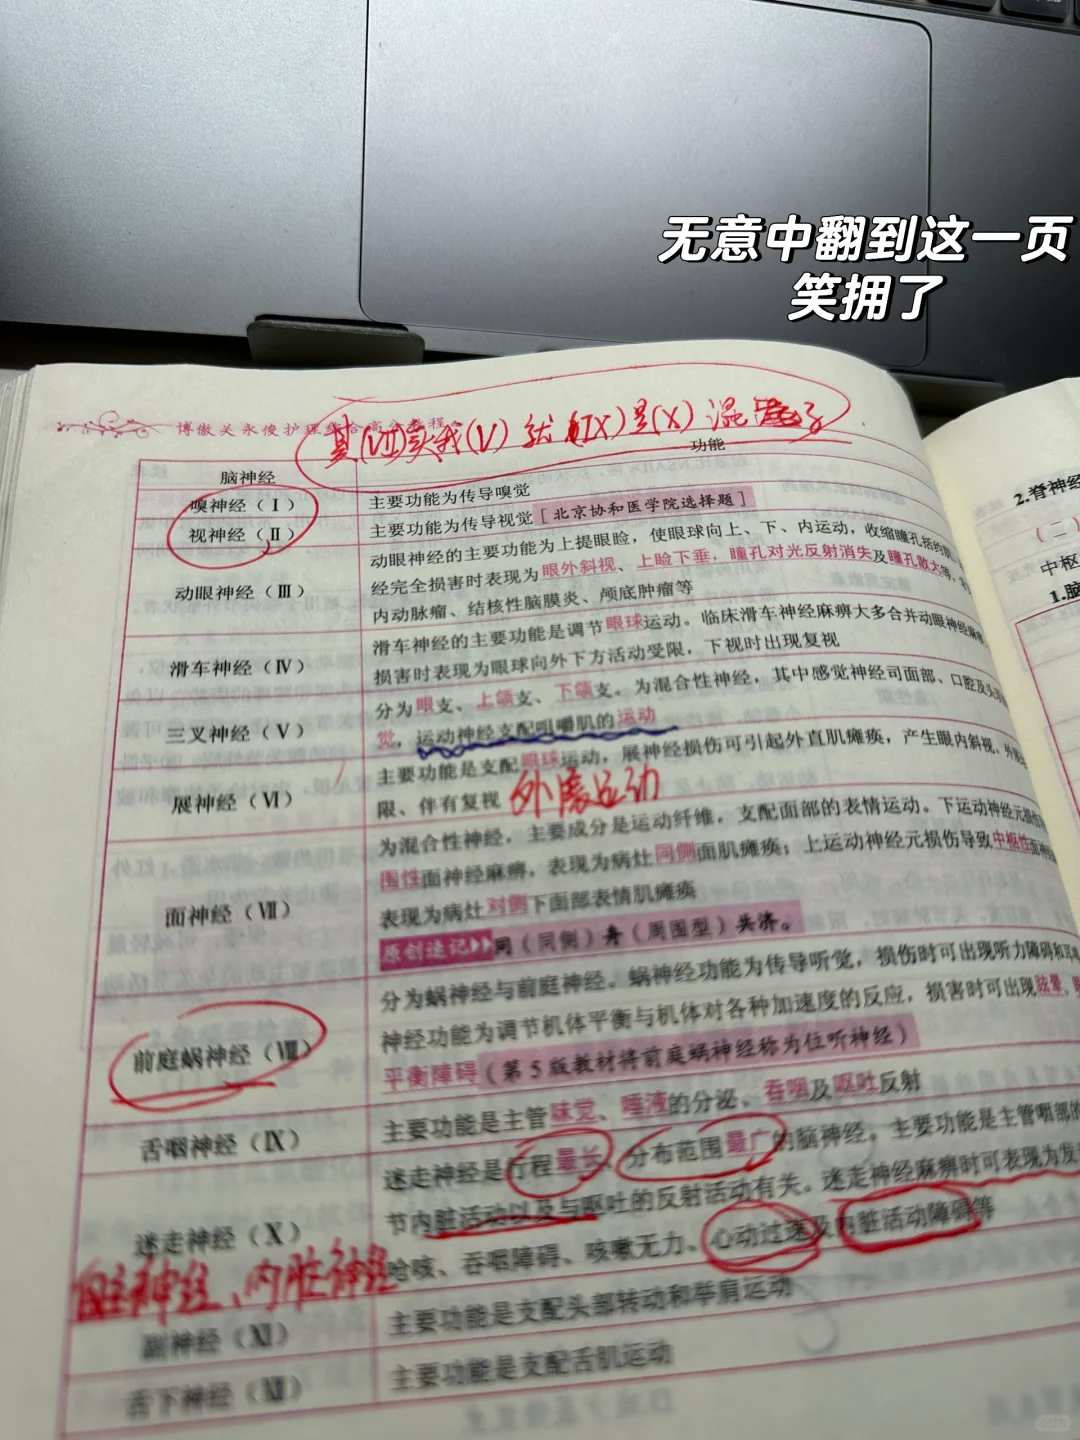 无意中翻到这一页
笑拥了
博傲关永俊护理综合高分教程
其(VII)实我(V) 就(IX)是(X) 混子
脑神经
功能
嗅神经（Ⅰ）
主要功能为传导嗅觉
视神经（Ⅱ）
主要功能为传导视觉［北京协和医学院选择题］
动眼神经（Ⅲ）
动眼神经的主要功能为上提眼睑，使眼球向上、下、内运动，收缩瞳孔括约
经完全损害时表现为眼外斜视、上睑下垂，瞳孔对光反射消失及瞳孔散大等，
内动脉瘤、结核性脑膜炎、颅底肿瘤等
滑车神经（Ⅳ）
滑车神经的主要功能是调节眼球运动。临床滑车神经麻痹大多合并动眼神经麻痹
损害时表现为眼球向外下方活动受限，下视时出现复视
三叉神经（Ⅴ）
分为眼支、上颌支、下颌支。为混合性神经，其中感觉神经司面部、口腔及头
觉，运动神经支配咀嚼肌的运动
展神经（Ⅵ）
主要功能是支配眼球运动，展神经损伤可引起外直肌瘫痪，产生眼内斜视、外展
限、伴有复视 外展运动
面神经（Ⅶ）
为混合性神经，主要成分是运动纤维，支配面部的表情运动。下运动神经元损伤
围性面神经麻痹，表现为病灶同侧面肌瘫痪；上运动神经元损伤导致中枢性面神经
表现为病灶对侧下面部表情肌瘫痪
原创速记▶▶同（同侧）舟（周围型）共济。
前庭蜗神经（Ⅷ）
分为蜗神经与前庭神经。蜗神经功能为传导听觉，损伤时可出现听力障碍和耳
神经功能为调节机体平衡与机体对各种加速度的反应，损害时可出现眩晕、
平衡障碍（第5版教材将前庭蜗神经称为位听神经）
舌咽神经（Ⅸ）
主要功能是主管味觉、唾液的分泌、吞咽及呕吐反射
迷走神经（Ⅹ）
迷走神经是行程最长、分布范围最广的脑神经。主要功能是主管咽部的
节内脏活动以及与呕吐的反射活动有关。迷走神经麻痹时可表现为发
哈咳、吞咽障碍、咳嗽无力、心动过速及内脏活动障碍等
自主神经、内脏神经
副神经（Ⅺ）
主要功能是支配头部转动和举肩运动
舌下神经（Ⅻ）
主要功能是支配舌肌运动
2.脊神经
（二）
中枢
1.脑
小红书